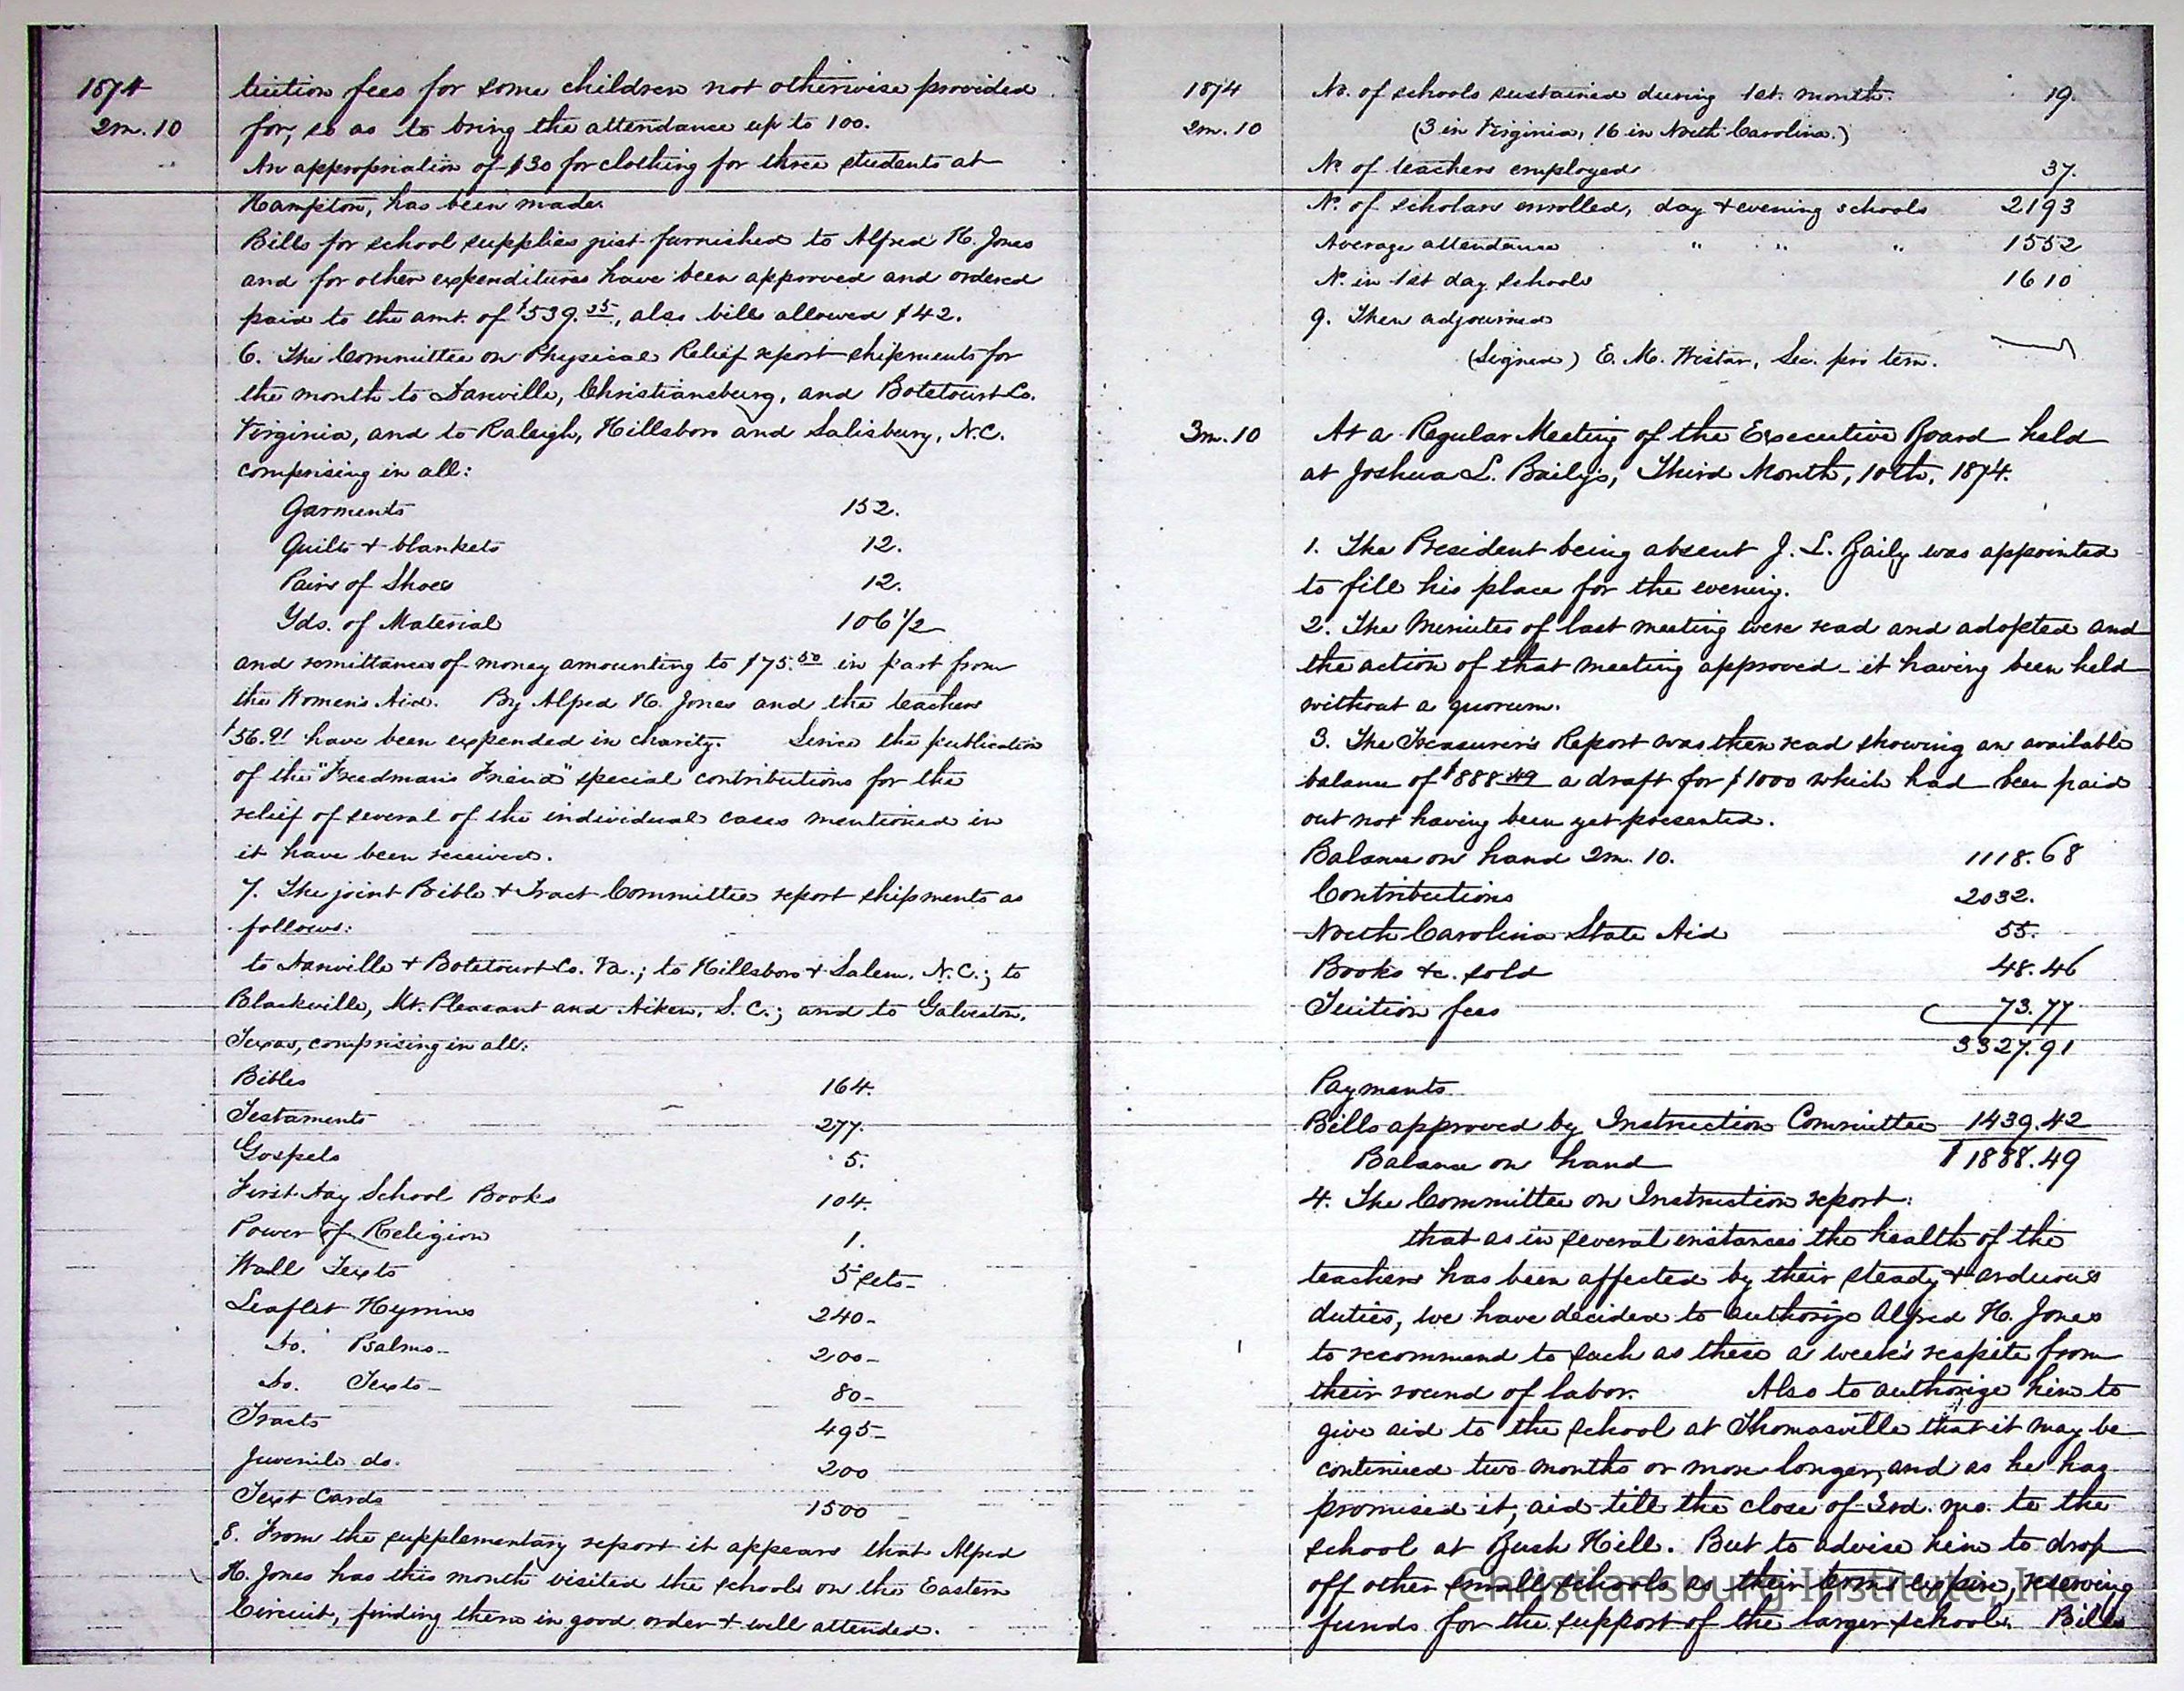 1874
2m. 10
tuition fees for some children not otherwise provided
for, so as to bring the attendance up to 100.
An appropriation of $30 for clothing for three students at
Hampton, has been made.
Bills for school supplies just furnished to Alfred H. Jones
and for other expenditures have been approved and ordered
paid to the amt. of $539.35, also bills allowed $42.
6. The Committee on Physical Relief report shipments for
the month to Danville, Christiansburg, and Botetourt Co.
Virginia, and to Raleigh, Hillsboro and Salisbury, N.C.
comprising in all:
Garments 152.
Quilts & blankets 12.
Pairs of Shoes 12.
Yds. of Material 106 1/2
and remittances of money amounting to $75.50 in part from
the Women's Aid. By Alfred H. Jones and the teachers
$56.91 have been expended in charity. Since the publication
of the "Freedman's Friend" special contributions for the
relief of several of the individual cases mentioned in
it have been received.
7. The joint Bible & Tract Committee report shipments as
follows:
to Danville & Botetourt Co. Va.; to Hillsboro & Salem, N.C.; to
Blackville, Mt. Pleasant and Aiken, S.C.; and to Galveston,
Texas, comprising in all:
Bibles 164.
Testaments 277.
Gospels 5.
First Day School Books 104.
Power of Religion 1.
Wall Texts 5 sets-
Leaflet Hymns 240-
Do. Psalms- 200-
Do. Texts- 80-
Tracts 495-
Juvenile do. 200
Text Cards 1500
8. From the supplementary report it appears that Alfred
H. Jones has this month visited the schools on the Eastern
Circuit, finding them in good order & well attended.
1874
2m. 10
No. of schools sustained during 1st. month. 19.
(3 in Virginia, 16 in North Carolina.)
No. of teachers employed 37.
No. of scholars enrolled, day & evening schools 2193
Average attendance " " " 1552
No. in 1st day schools 1610
9. Then adjourned
(Signed) E. M. Wistar, Sec. pro tem.
3m. 10
At a Regular Meeting of the Executive Board held
at Joshua L. Baily's, Third Month, 10th, 1874.
1. The President being absent J. L. Baily was appointed
to fill his place for the evening.
2. The Minutes of last meeting were read and adopted and
the action of that meeting approved - it having been held
without a quorum.
3. The Treasurer's Report was then read showing an available
balance of $888.49 a draft for $1000 which had been paid
out not having been yet presented.
Balance on hand 2m. 10. 1118.68
Contributions 2032.
North Carolina State Aid 55.
Books &c. sold 48.46
Tuition fees 73.77
3327.91
Payments
Bills approved by Instruction Committee 1439.42
Balance on hand $1888.49
4. The Committee on Instruction report:
that as in several instances the health of the
teachers has been affected by their steady & arduous
duties, we have decided to authorize Alfred H. Jones
to recommend to such as these a week's respite from
their round of labor. Also to authorize him to
give aid to the school at Thomasville that it may be
continued two months or more longer, and as he has
promised it, aid till the close of 3rd. mo. to the
school at Bush Hill. But to advise him to drop
off other small schools as their terms expire, reserving
funds for the support of the larger schools. Bills
Christiansburg Institute, Inc.